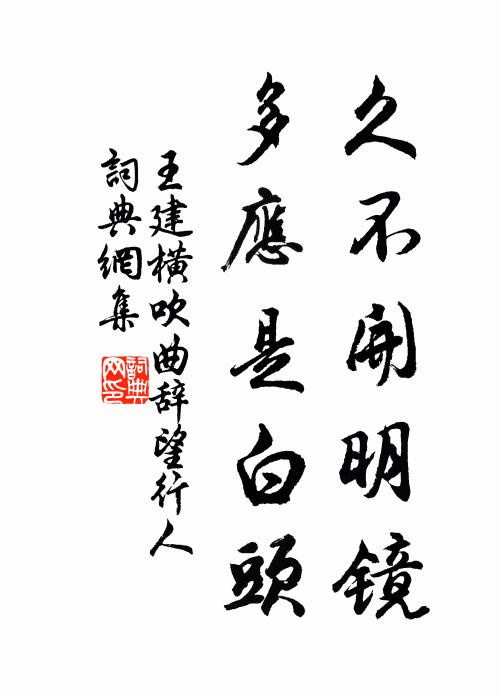 久不開明镜
多應是白頭
王建横吹曲辞望行人
詞典網集
詞典
网印